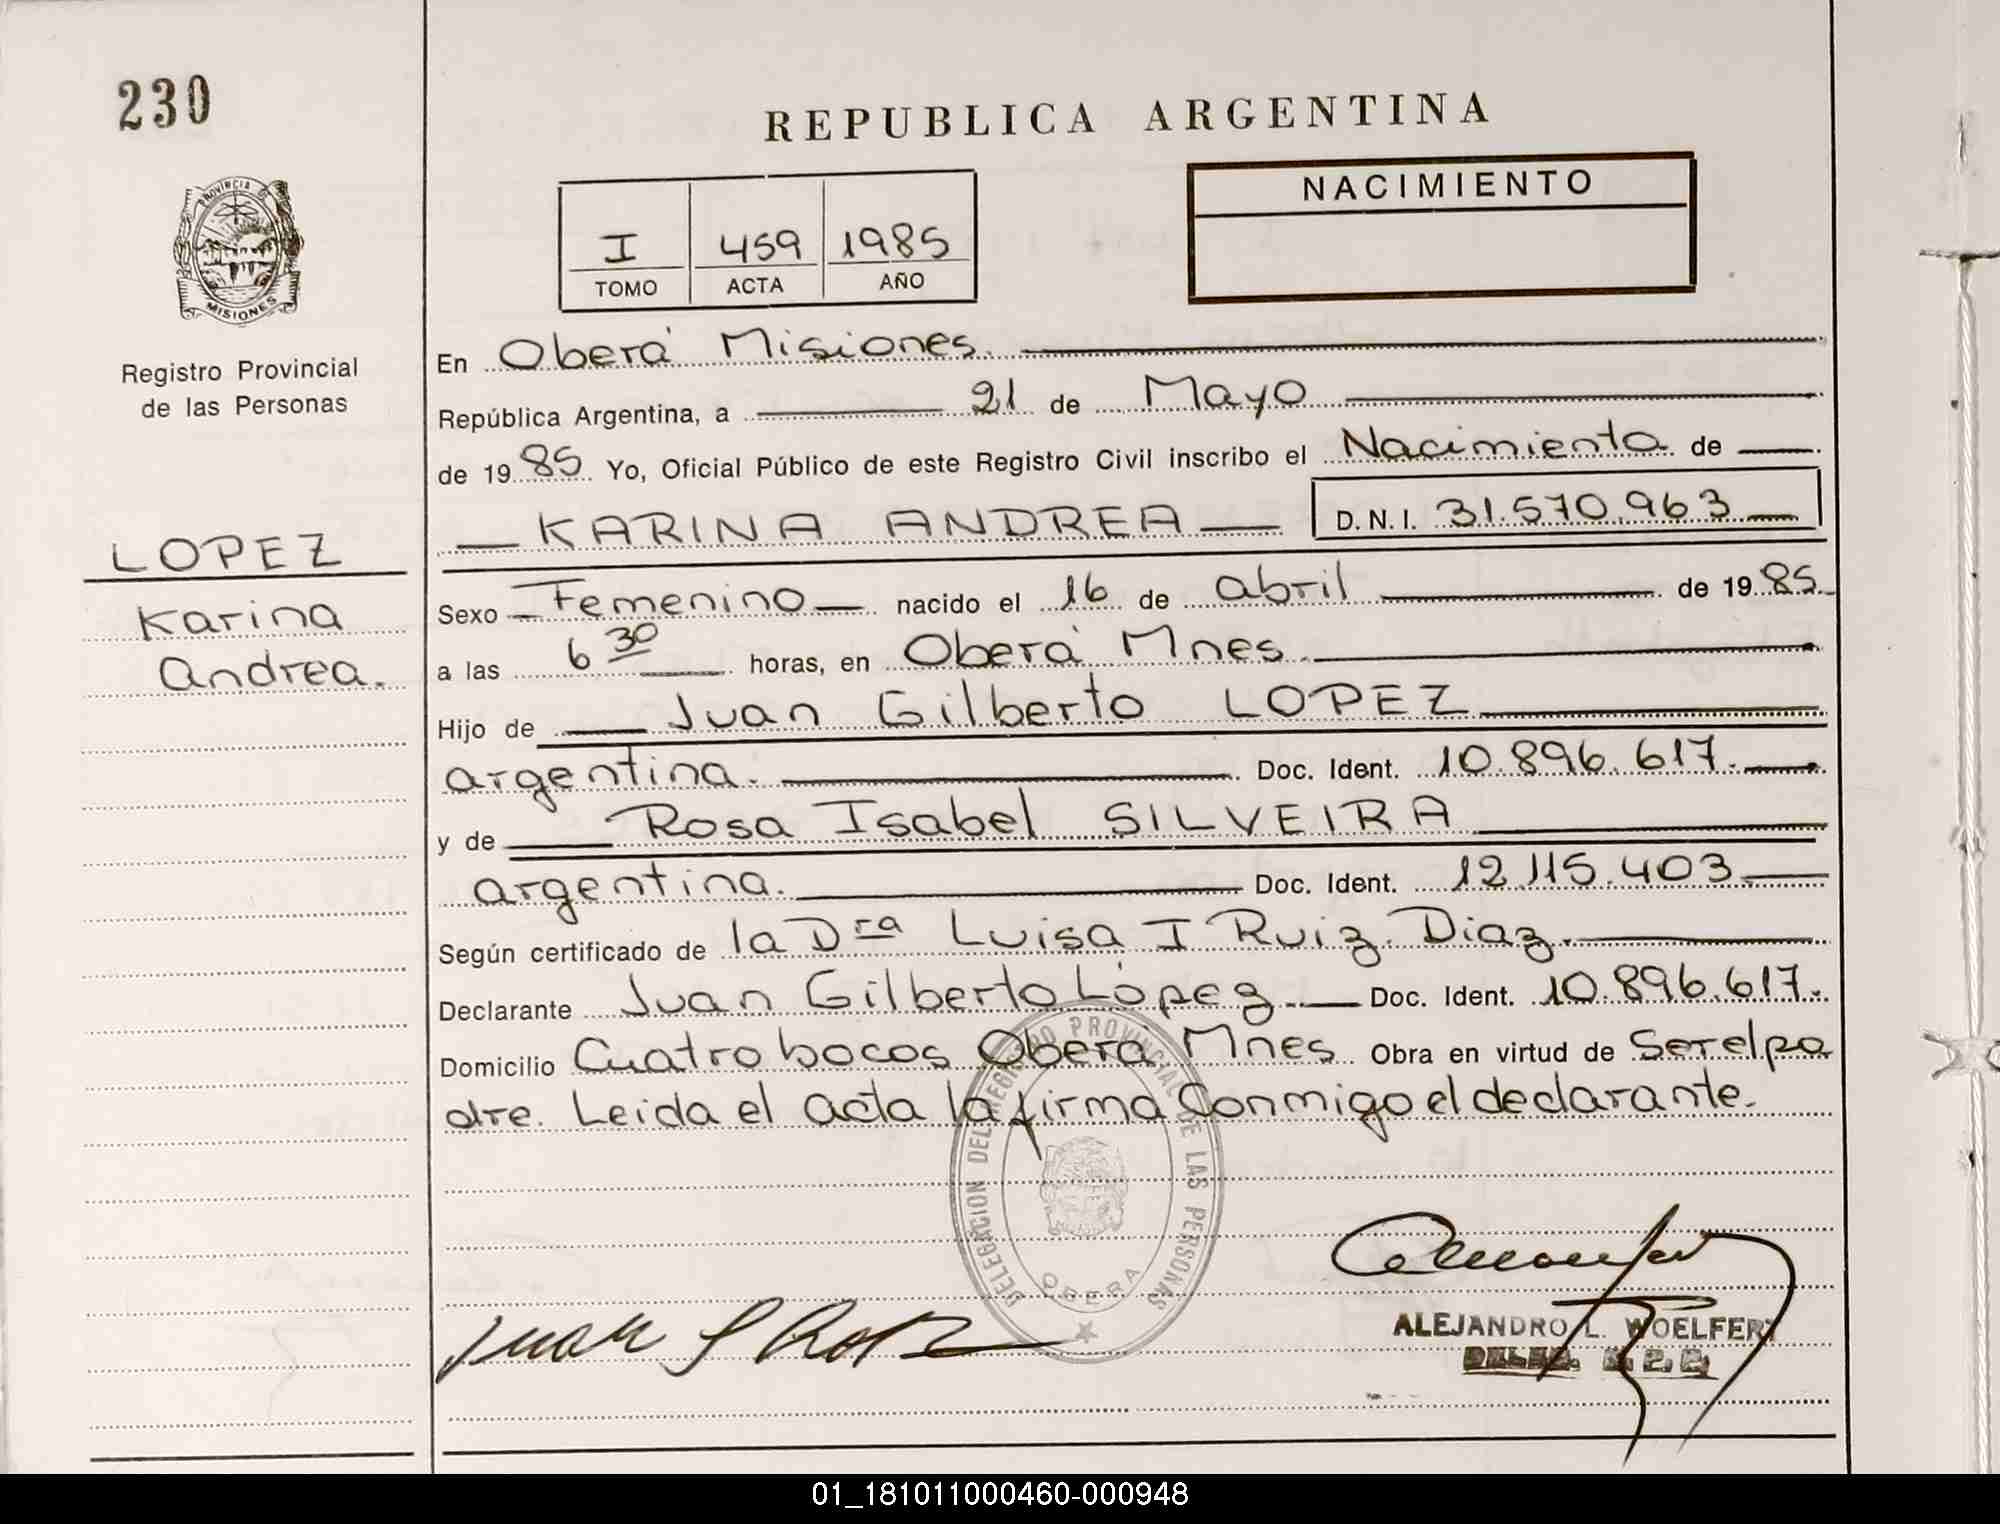 230
REPUBLICA ARGENTINA
PROVINCIA DE
MISIONES
I 459 1985
TOMO ACTA AÑO
NACIMIENTO
Registro Provincial
de las Personas
LOPEZ
Karina
Andrea.
En Oberá Misiones.
República Argentina, a 21 de Mayo
de 1985 Yo, Oficial Público de este Registro Civil inscribo el Nacimiento de
KARINA ANDREA D.N.I. 31.570.963
Sexo Femenino nacido el 16 de abril de 1985.
a las 6 30 horas, en Oberá Mnes.
Hijo de Juan Gilberto LOPEZ
argentina. Doc. Ident. 10.896.617.
y de Rosa Isabel SILVEIRA
argentina. Doc. Ident. 12.115.403
Según certificado de la Dra Luisa I Ruiz Diaz.
Declarante Juan Gilberto López Doc. Ident. 10.896.617.
Domicilio Cuatro bocos Oberá Mnes Obra en virtud de Ser el pa
dre. Leida el acta la firma Conmigo el declarante.
DELEGACION DEL REGISTRO PROVINCIAL DE LAS PERSONAS
OBERA
ALEJANDRO L. WOELFERT
01_181011000460-000948